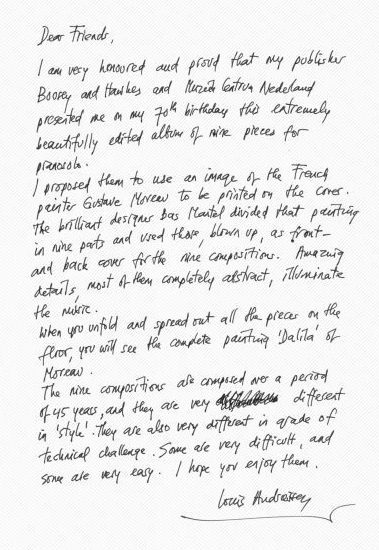 Dear Friends,
I am very honoured and proud that my publisher
Boosey and Hawkes and Muziek Centrum Nederland
presented me on my 70th birthday this extremely
beautifully edited album of nine pieces for
pianosolo.
I proposed them to use an image of the French
painter Gustave Moreau to be printed on the cover.
The brilliant designer Bas Mantel divided that painting
in nine parts and used those, blown up, as front-
and back cover for the nine compositions. Amazing
details, most of them completely abstract, illuminate
the music.
When you unfold and spread out all the pieces on the
floor, you will see the complete painting 'Dalila' of
Moreau.
The nine compositions are composed over a period
of 45 years, and they are very different
in 'style'. They are also very different in grade of
technical challenge. Some are very difficult, and
some are very easy. I hope you enjoy them.
Louis Andriessen